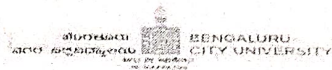 ಬೆಂಗಳೂರು
ನಗರ ವಿಶ್ವವಿದ್ಯಾಲಯ
BENGALURU
CITY UNIVERSITY